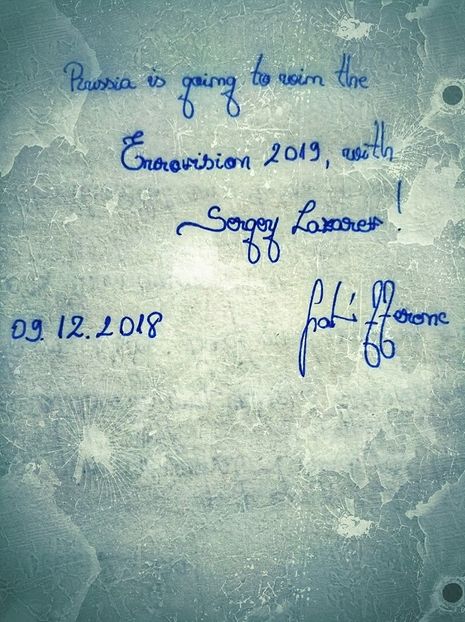 Russia is going to win the
Eurovision 2019, with
Sergey Lazarev!
09.12.2018